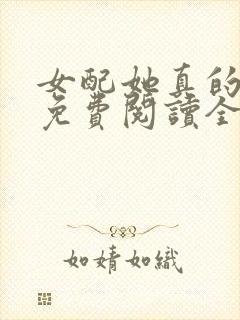 女配她真的
免費閱讀全
如婧如織